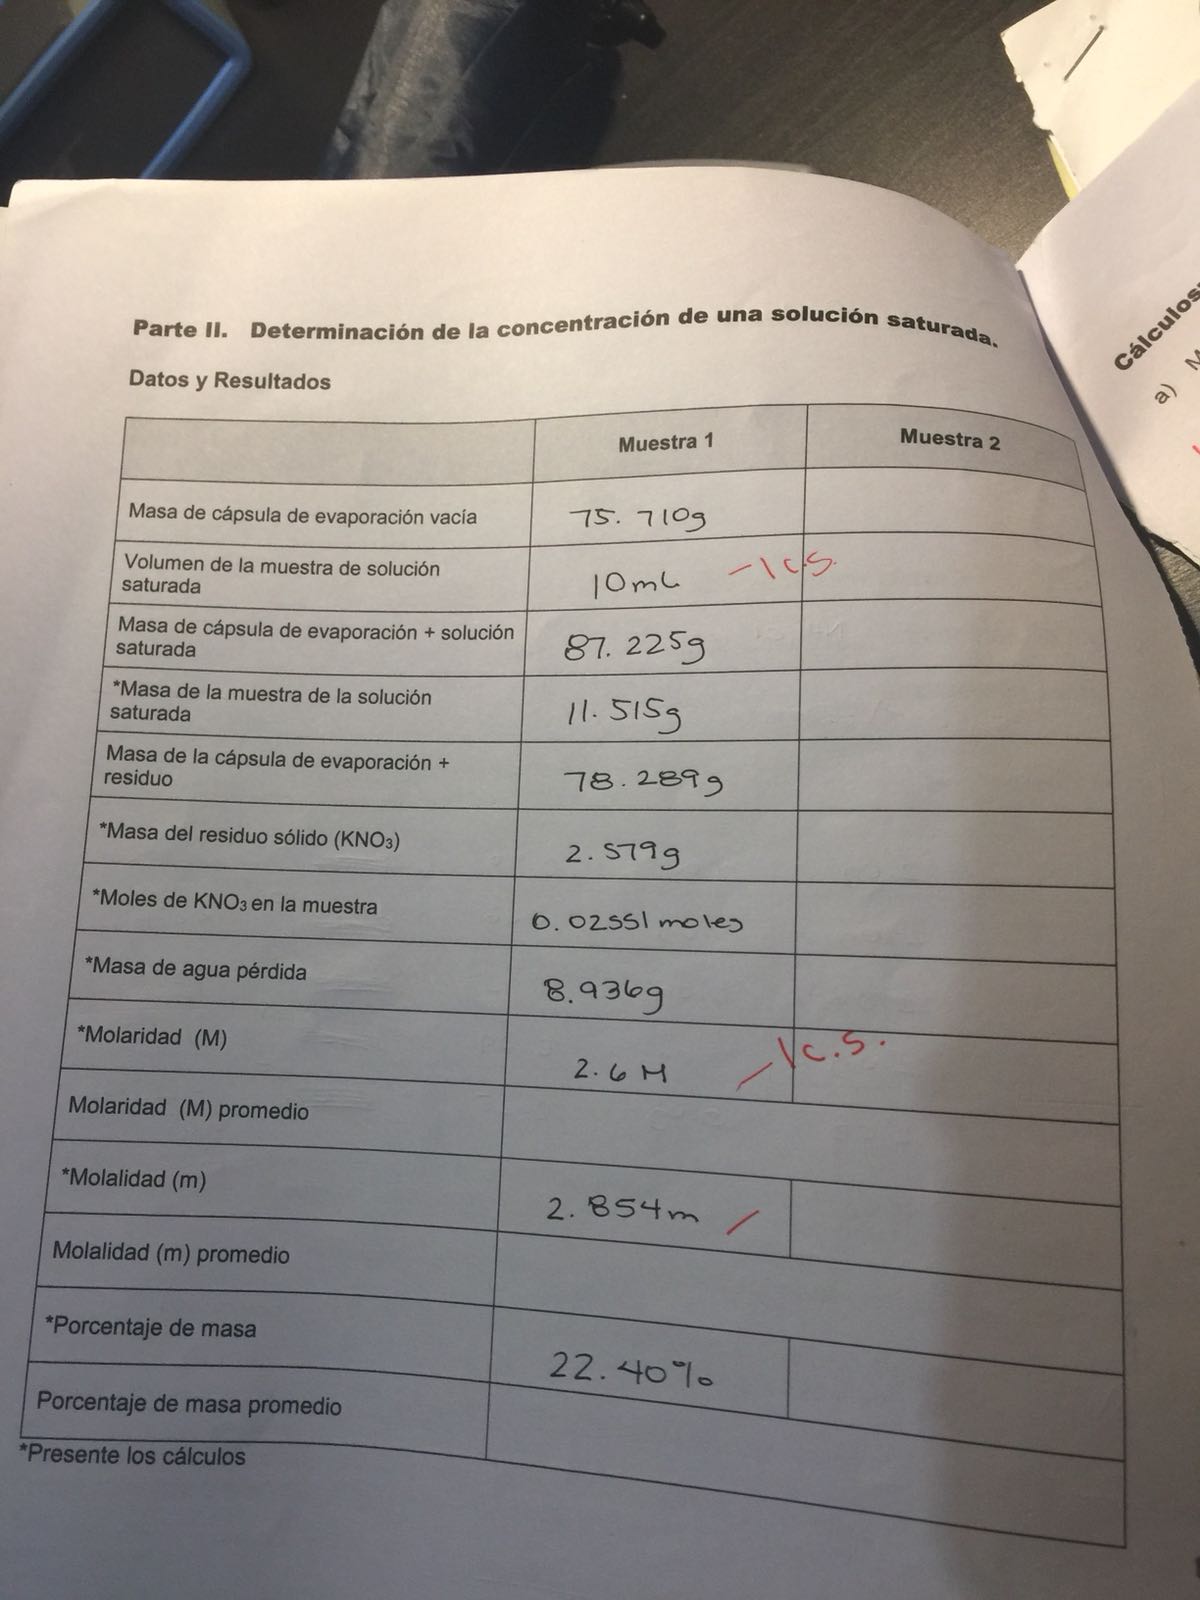 Parte II. Determinación de la concentración de una solución saturada.
Datos y Resultados
Muestra 1
Muestra 2
Masa de cápsula de evaporación vacía
75.710g
Volumen de la muestra de solución
saturada
10mL
-1 c.s.
Masa de cápsula de evaporación + solución
saturada
87.225g
*Masa de la muestra de la solución
saturada
11.515g
Masa de la cápsula de evaporación +
residuo
78.289g
*Masa del residuo sólido (KNO3)
2.579g
*Moles de KNO3 en la muestra
0.02551 moles
*Masa de agua pérdida
8.936g
*Molaridad (M)
2.6 M
-1 c.s.
Molaridad (M) promedio
*Molalidad (m)
2.854m
Molalidad (m) promedio
*Porcentaje de masa
22.40%
Porcentaje de masa promedio
*Presente los cálculos
Cálculos
a) M